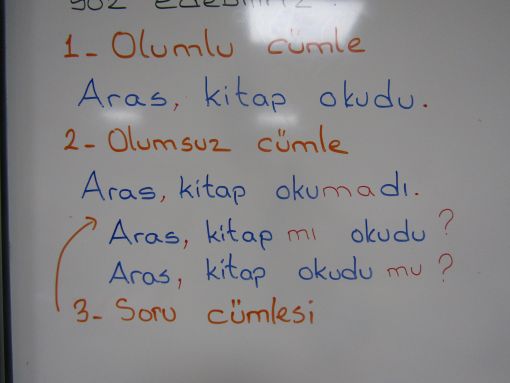 1- Olumlu cümle
Aras, kitap okudu.
2- Olumsuz cümle
Aras, kitap okumadı.
Aras, kitap mı okudu?
Aras, kitap okudu mu?
3- Soru cümlesi